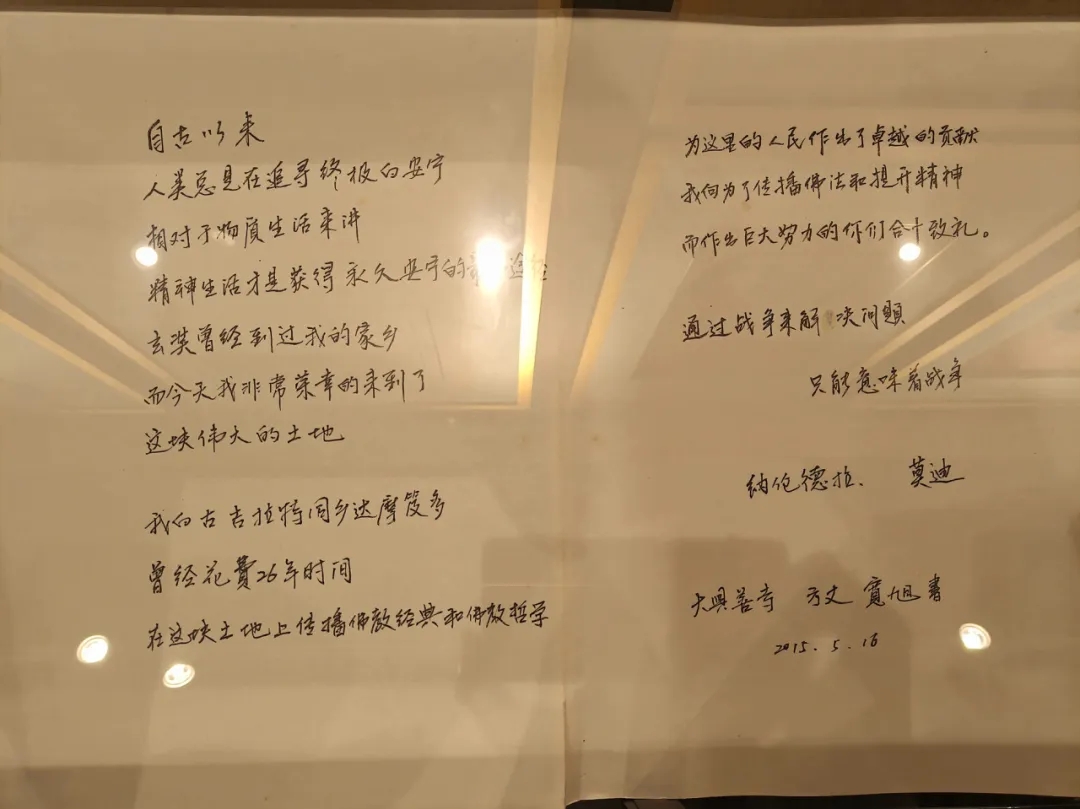 自古以来
人类总是在追寻终极的安宁
相对于物质生活来讲
精神生活才是获得永久安宁的
玄奘曾经到过我的家乡
而今天我非常荣幸的来到了
这块伟大的土地
我的古吉拉特同乡达摩笈多
曾经花費26年时间
在这块土地上传播佛教经典和佛教哲学
为这里的人民作出了卓越的贡献
我向为了传播佛法和提升精神
而作出巨大努力的你们合十致礼。
通过战争来解决问题
只能意味着战争
纳伦德拉．莫迪
大興善寺 方丈 寬旭書
2015.5.16